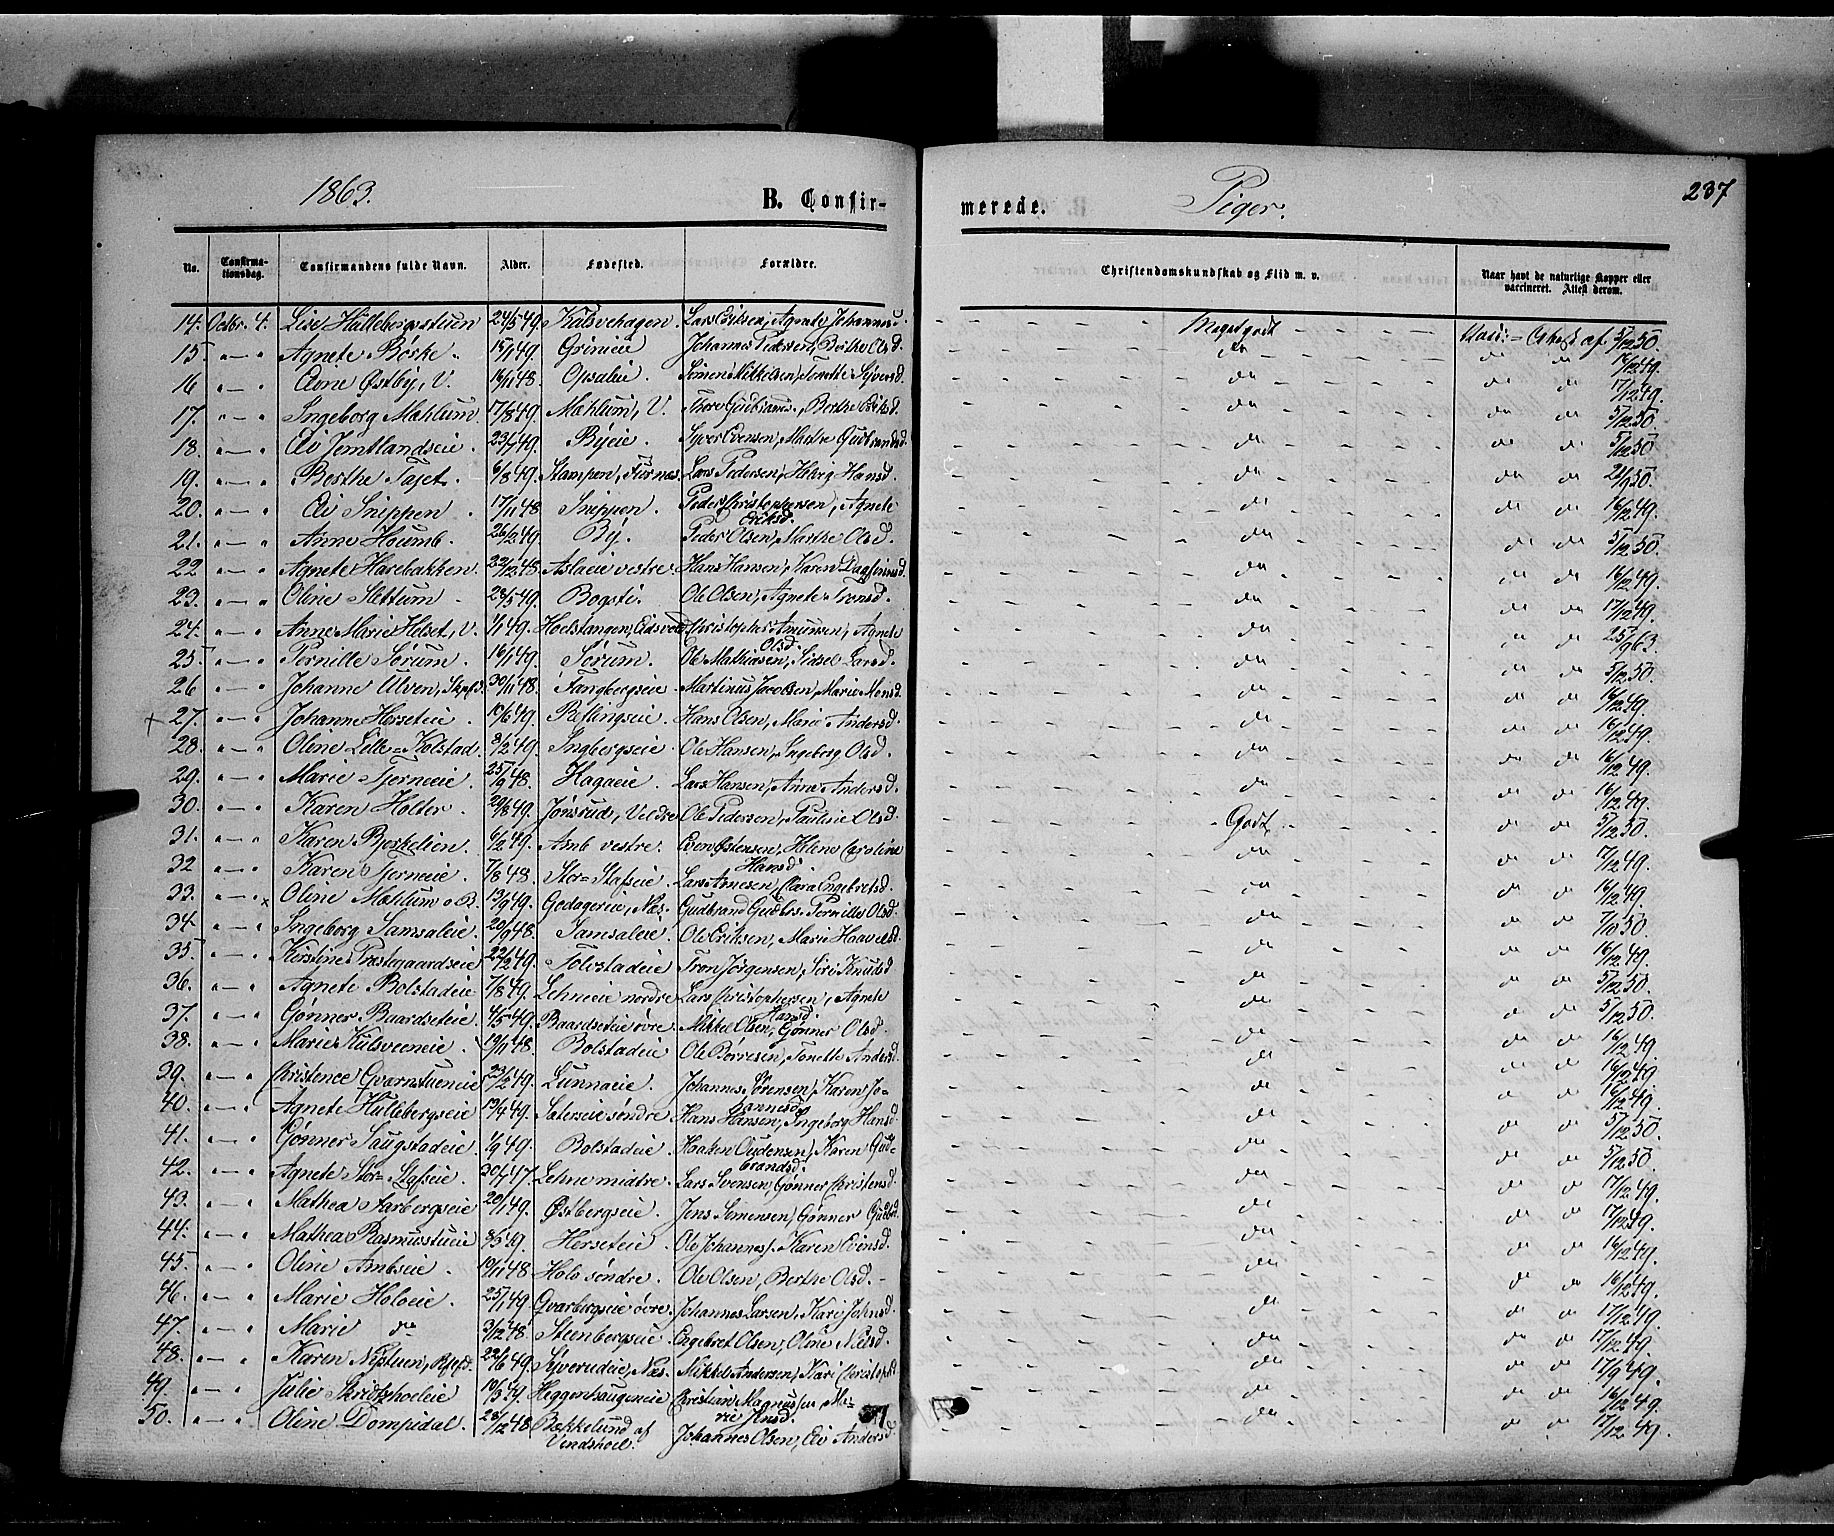 1863.
B. Confir-
merede.
Piger.
237
No.
Confirma-
tionsdag.
Confirmandens fulde Navn.
Alder.
Fødested.
Forældre.
Christendomskundskab og Flid m. v.
Naar havt de naturlige Kopper eller
vaccineret. Attest derom.
14. Octbr. 4. Lise Hallebergstuen 24/5 49. Kulsvehagen. Lars Eriksen, Agnete Johannesd. Meget godt 5/12 50.
15 Agnete Børke 15/1 49. Grinieie Johannes Pedersen, Berthe Olsd. do do do 17/12 49.
16 Eline Østby, V. 16/11 48. Opsaleie. Simen Mikkelsen, Tonette Syversd. do do do 17/12 49.
17. Ingeborg Mæhlum 17/8 49. Mæhlum, V. Thore Gudbrands., Berthe Eriksd. do do do 5/12 50.
18. Eli Jemtlandseie 23/7 49. Byeie. Syver Evensen, Marthe Gudbrandsd. do do do 5/12 50.
19. Berthe Tajet. 6/8 49. Stampen, Furnæs. Lars Pedersen, Marig Hansd. do do do 21/9 50.
20. Eli Snippen. 17/11 48 Snippen. Peder Christophersen, Agnete do do do 16/12 49.
Eriksd.
21. Anne Houmb. 26/2 49. By. Peder Olsen, Marthe Olsd. do do do 5/12 50.
22 Agnete Harebakken 22/12 48. Aslaeie vestre. Hans Hansen, Karen Dagfinnsd. do do do 16/12 49.
23. Oline Slettum. 28/5 49. Bogsti. Ole Olsen, Agnete Tronsd. do do do 17/12 49.
24. Anne Marie Helset, V. 1/1 49. Hoelstangen, Eidsvold Christopher Amunsen, Agnete do do do 25/9 63.
Olsd.
25 Pernille Sørum. 16/1 49. Sørum. Ole Mathiasen, Sidsel Larsd. do do do 5/12 50.
26 Johanne Ulven, Stefd. 30/11 48. Fangbergseie. Martinus Jacobsen, Marie Monsd. do do do 16/12 49.
27. Johanne Herseteie. 10/6 49. Reflingseie. Hans Olsen, Marie Andersd. do do do 16/12 49.
28. Oline Lille-Kolstad. 8/2 49. Ingbergseie. Ole Hansen, Ingeborg Olsd. do do do 16/12 49.
29. Marie Tjerneeie 25/9 48. Hagaeie. Lars Hansen, Anne Andersd. do do do 16/12 49.
30. Karen Holter. 20/8 49. Jønsrud, Veldre Ole Pedersen, Pauline Olsd. Godt do do 5/12 50.
31. Karen Bjerkelien. 6/2 49. Amb vestre. Even Østensen, Helene Caroline do do do 17/12 49.
Hansd.
32 Karen Tjerneeie. 7/8 48. Stor-Stafseie. Lars Arnesen, Clara Engebretsd. do do do 16/12 49.
33. Oline Mæhlum B. 13/9 49. Godagereie, Næs. Gudbrand Gudbrs. Pernille Olsd. do do do 7/10 50.
34. Ingeborg Samsaleie. 20/9 48. Samsaleie. Ole Eriksen, Marie Haavelsd. do do do 16/12 49.
35. Kirstine Præstegaardseie 22/2 49. Tolvstadeie Tron Jørgensen, Siri Knudsd. do do do 5/12 50.
36. Agnete Bolstadeie 7/8 49. Lehneeie nordre Lars Christophersen, Agnete do do do 5/12 50.
Hansd.
37. Gønner Baardseteie. 4/5 49. Baardseteie øvre. Mikkel Olsen, Gønner Olsd. do do do 16/12 49.
38. Marie Kulsveeneie 19/11 48. Bolstadeie Ole Børresen, Tonette Andersd. do do do 16/12 49.
39. Christence Qvarnstueneie 23/2 49. Lunnaeie. Johannes Sørensen, Karen Jo- do do do 16/12 49.
hannesd.
40. Agnete Hullebergseie 13/4 49. Sætereie søndre. Hans Hansen, Ingeborg Hansd. do do do 5/12 50.
41. Gønner Saugstadeie. 1/9 49. Bolstadeie Haaken Audensen, Karen Gud- do do do 5/12 50.
brandsd.
42. Agnete Stor-Stafseie. 30/7 47. Lehne midtre. Lars Svensen, Gønner Christensd. do do do 17/12 49.
43. Mathea Aarbergseie 20/1 49. Østbergseie. Jens Simensen, Gønner Gudbd. do do do 17/12 49.
44. Mathea Rasmusstueie 8/5 49. Herseteie. Ole Johanness. Karen Evensd. do do do 16/12 49.
45. Oline Ambseie. 19/11 48 Holo søndre. Ole Olsen, Berthe Olsd. do do do 16/12 49.
46. Marie Holoeie. 25/1 49. Qvarbergseie øvre. Johannes Larsen, Kari Johnsd. do do do 17/12 49.
47. Marie do 3/12 48. Steenbergseie. Engebret Olsen, Oline Nilsd. do do do 17/12 49.
48. Karen Nystuen, 22/6 49. Syverudeie, Næs. Mikkel Andersen, Kari Christophd. do do do 17/9 49.
49. Julie Skridtshoeleie 10/3 49. Heggenhaugeneie Christian Magnussen, Ma- do do do 16/12 49.
rie Jensd.
50. Oline Dompidal. 28/12 48. Bækkelund af Johannes Olsen, Eli Andersd. do do do 17/12 49.
Vendshoel.